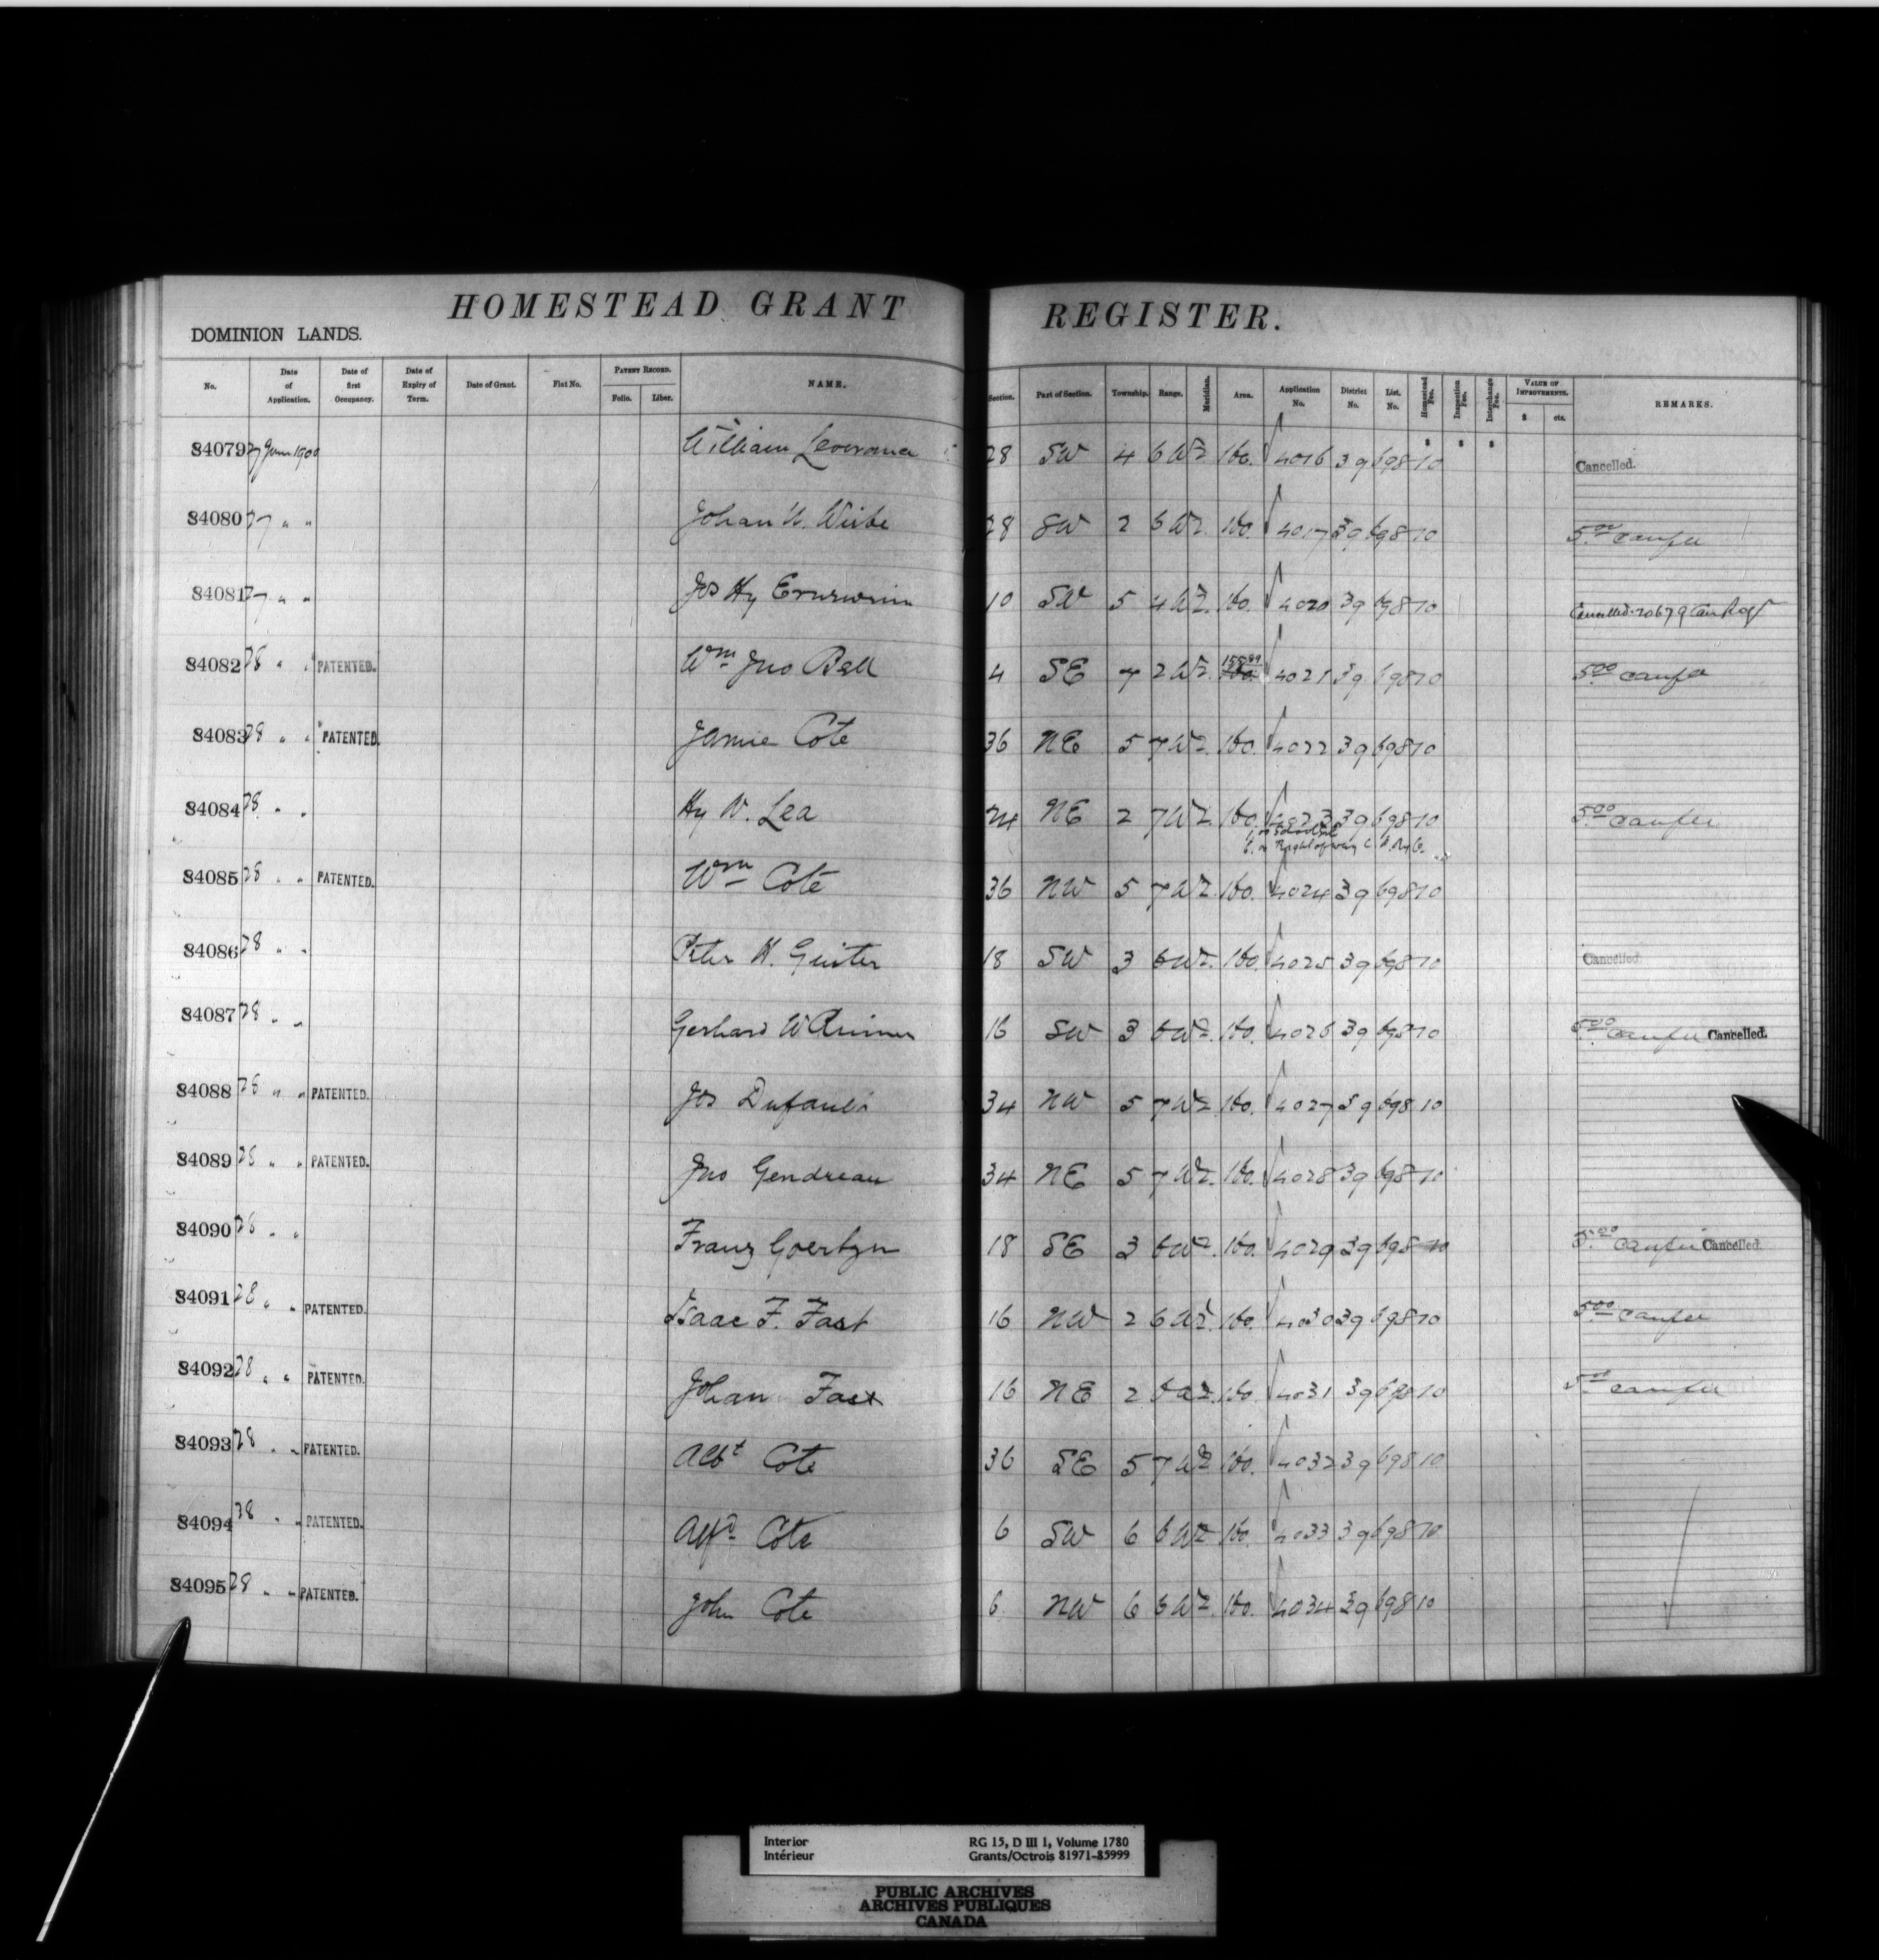 HOMESTEAD GRANT REGISTER.
DOMINION LANDS.
No. Date of Application. Date of first Occupancy. Date of Expiry of Term. Date of Grant. Fiat No. PATENT RECORD. Folio. Liber. NAME. Section. Part of Section. Township. Range. Meridian. Area. Application No. District No. List. No. Homestead Fee. Inspection Fee. Interchange Fee. VALUE OF IMPROVEMENTS. $ cts. REMARKS.
$ $ $
84079 27 June 1900 William 28 SW 4 6 W2. 160. 4016 39 698 10 Cancelled.
84080 27 " " Johan Wiebe 28 SW 2 6 W2. 160. 4017 39 698 10 5.00 canfee
84081 27 " " Jos Hy 10 SW 5 4 W2. 160. 4020 39 698 10 Cancelled. 20679 Can Regr
84082 28 " " PATENTED. Wm Jno Bell 4 SE 7 2 W2. 155.89 160. 4021 39 698 10 5.00 canfee
84083 28 " " PATENTED. Jamie Cote 36 NE 5 7 W2. 160. 4022 39 698 10
84084 28 " " Hy W. Lea 24 NE 2 7 W2. 160. 4023 39 698 10 5.00 canfee
Right of way
84085 28 " " PATENTED. Wm Cote 36 NW 5 7 W2. 160. 4024 39 698 10
84086 28 " " Peter H. 18 SW 3 6 W2. 160. 4025 39 698 10 Cancelled.
84087 28 " " Gerhard W 16 SW 3 6 W2. 160. 4026 39 698 10 5.00 canfee Cancelled.
84088 28 " " PATENTED. Jos Dufault 34 NW 5 7 W2 160. 4027 39 698 10
84089 28 " " PATENTED. Jno Gendreau 34 NE 5 7 W2. 160. 4028 39 698 10
84090 28 " " Franz Goertzen 18 SE 3 6 W2. 160. 4029 39 698 10 5.00 canfee Cancelled.
84091 28 " " PATENTED. Isaac F. Fast 16 NW 2 6 W2. 160. 4030 39 698 10 5.00 canfee
84092 28 " " PATENTED. Johan Fast 16 NE 2 6 W2. 160. 4031 39 698 10 5.00 canfee
84093 28 " " PATENTED. Albt Cote 36 SE 5 7 W2 160. 4032 39 698 10
84094 28 " " PATENTED. Alfd Cote 6 SW 6 6 W2 160. 4033 39 698 10
84095 28 " " PATENTED. John Cote 6 NW 6 6 W2. 160. 4034 39 698 10
Interior
Intérieur
RG 15, D III 1, Volume 1780
Grants/Octrois 81971-85999
PUBLIC ARCHIVES
ARCHIVES PUBLIQUES
CANADA